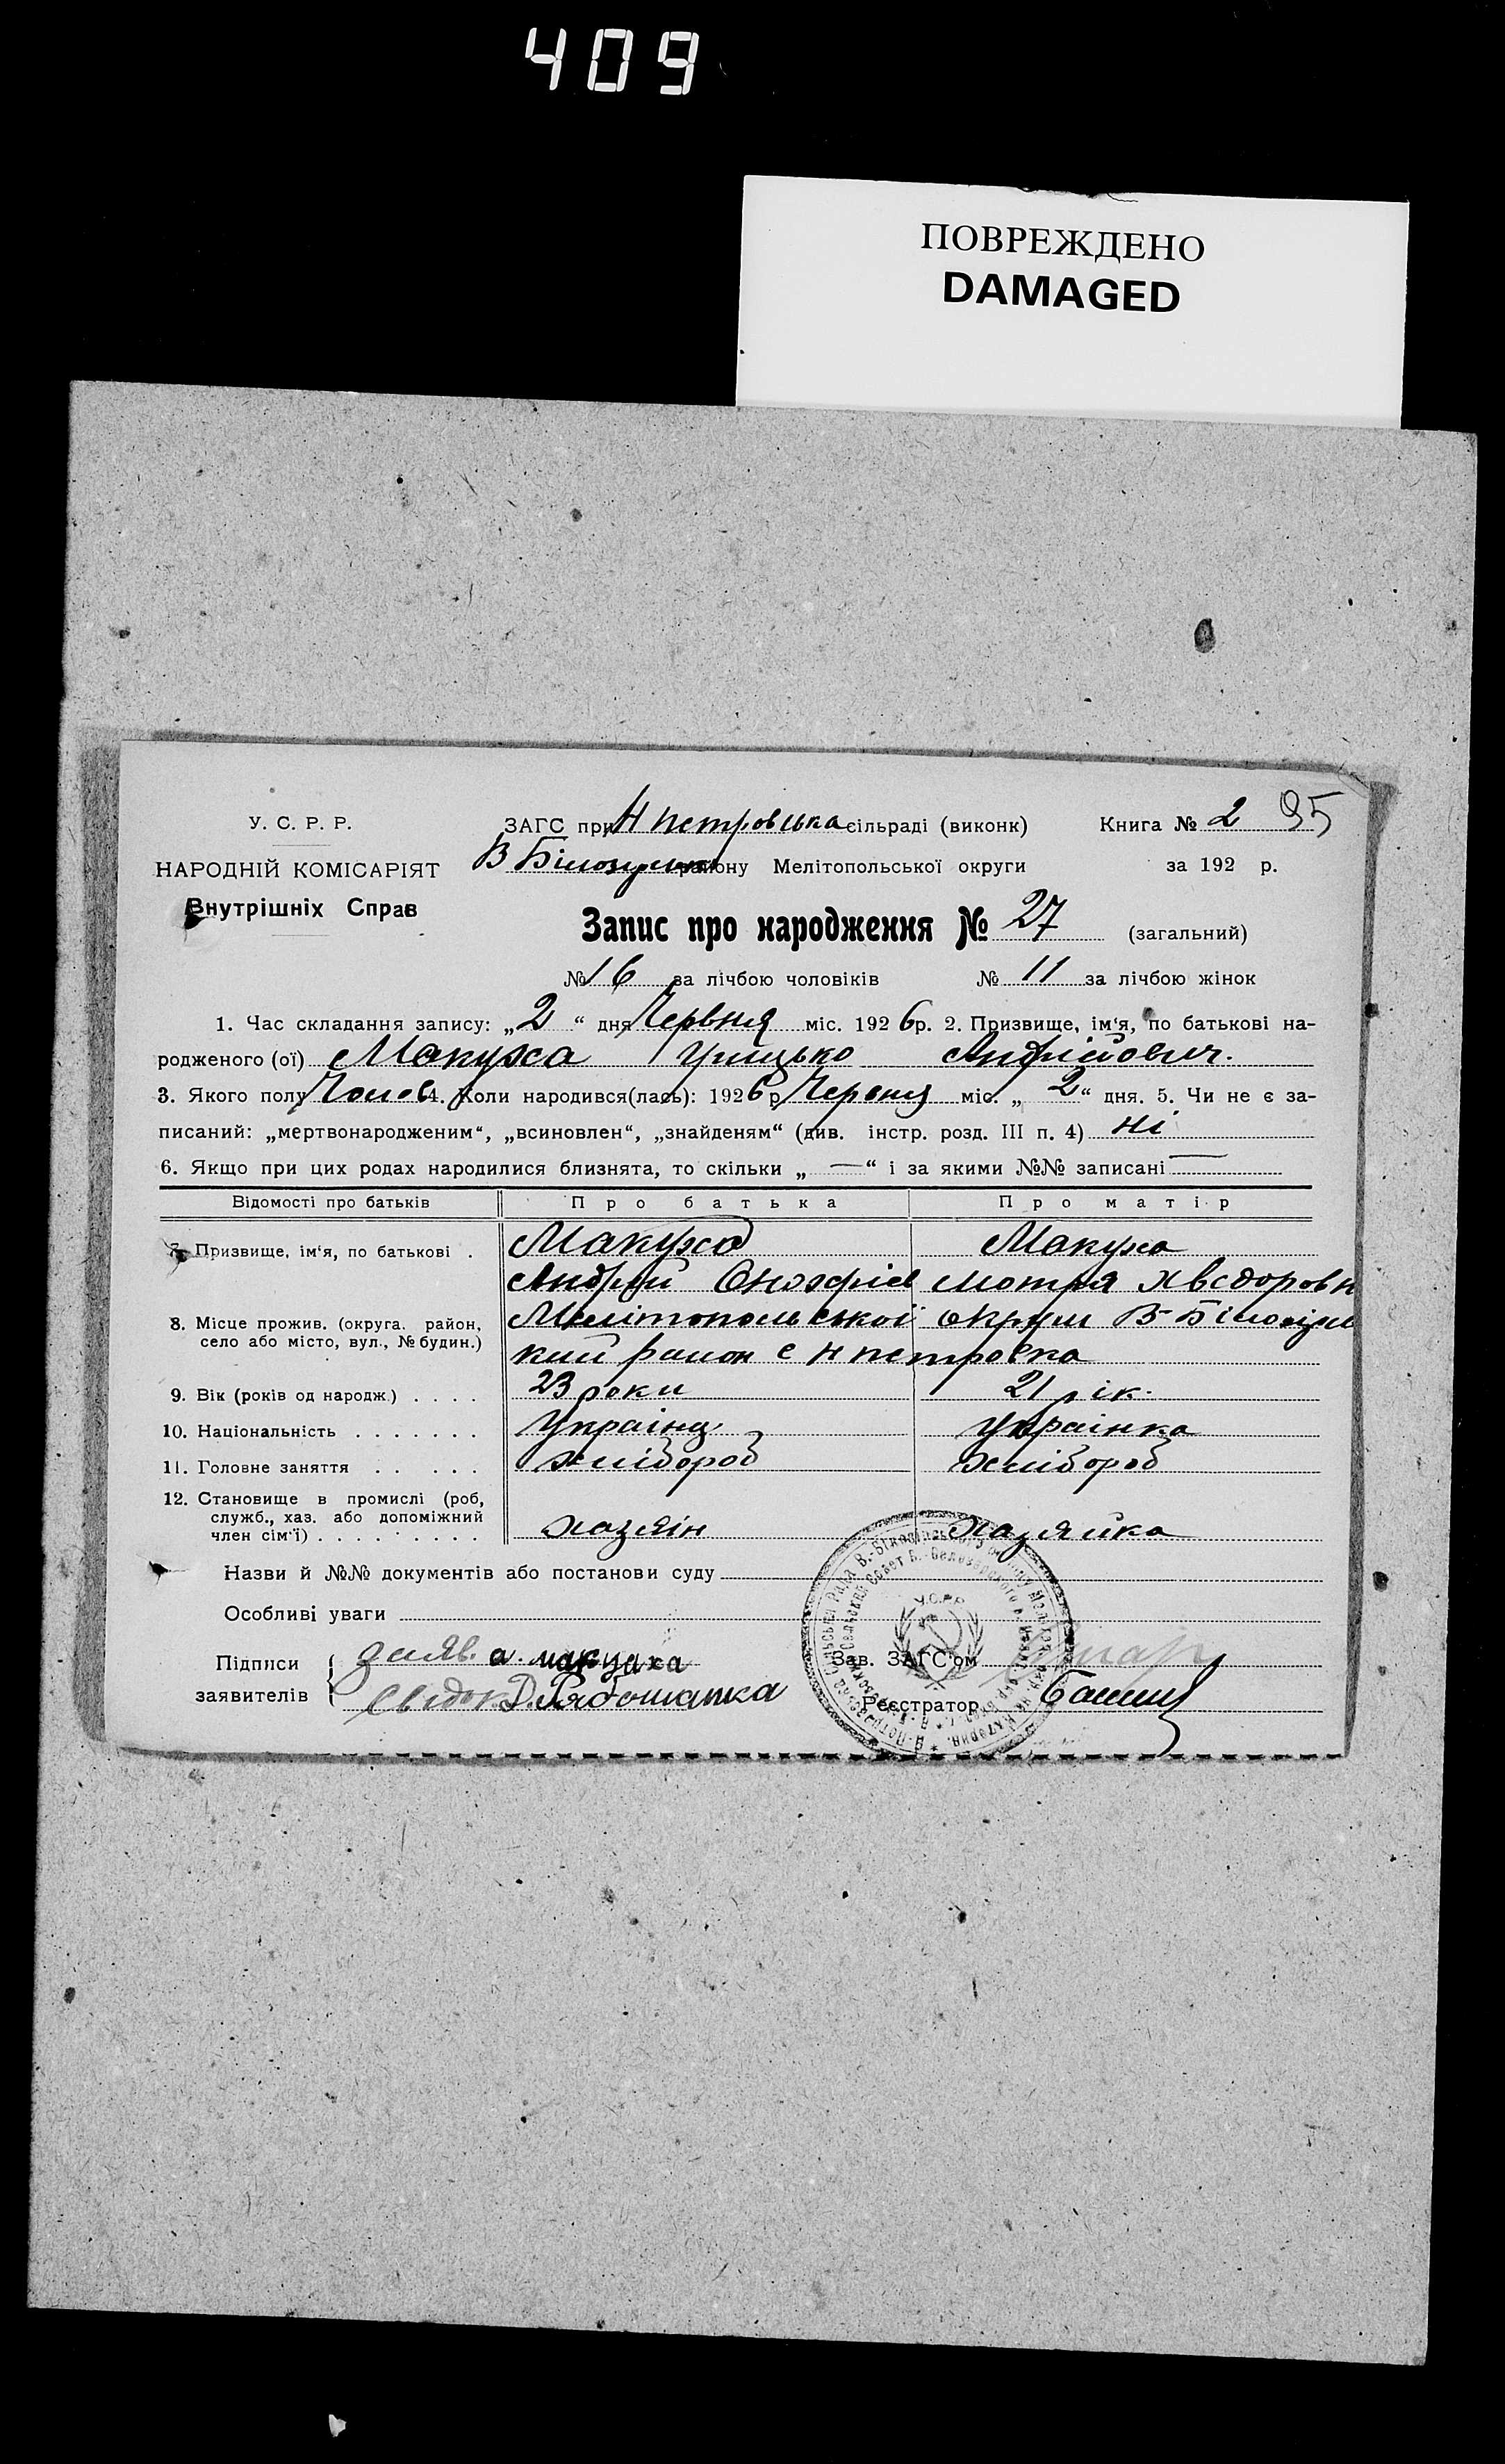 409
ПОВРЕЖДЕНО
DAMAGED
У. С. Р. Р. ЗАГС при Н петровська сільраді (виконк) Книга № 2 95
НАРОДНІЙ КОМІСАРІЯТ В Білозірько району Мелітопольської округи за 192 р.
Внутрішніх Справ
Запис про народження № 27 (загальний)
№ 16 за лічбою чоловіків № 11 за лічбою жінок
1. Час складання запису: „2“ дня Червня міс. 1926р. 2. Призвище, ім‘я, по батькові на-
родженого (ої) Макуха Грицько Андрійович.
3. Якого полу Чолов 4. Коли народився(лась): 1926 р Червня міс. „2“ дня. 5. Чи не є за-
писаний: „мертвонародженим“, „всиновлен“, „знайденям“ (див. інстр. розд. III п. 4) ні
6. Якщо при цих родах народилися близнята, то скільки „ — “ і за якими №№ записані —
Відомості про батьків Про батька Про матір
7. Призвище, ім‘я, по батькові . Макуха Макуха
Андрій Оногфріев Мотря Хведоровн
8. Місце прожив. (округа. район, село або місто, вул., № будин.) Мелітопольської округи В-Білозір
кий район с Н петровка
9. Вік (років од народж.) . . . . 23 роки 21 рік.
10. Національність . . . . . . . Украінц Украінка
11. Головне заняття . . . . . хлібороб хлібороб
12. Становище в промислі (роб,
служб., хаз. або допоміжний
член сім‘ї) . . . . . . . . . хазяін хазяйка
Назви й №№ документів або постанови суду
Особливі уваги
У.С.Р.Р.
Підписи заяв. а. макуаха Зав. ЗАГС‘ом
заявителів свідок Д. Рябошапка Реєстратор